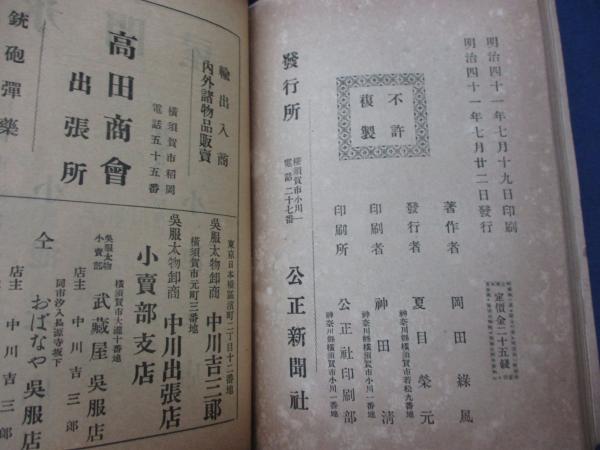 明治四十一年七月十九日印刷
明治四十一年七月廿二日發行
定價金二十五錢
著作者 岡田綠風
神奈川縣橫須賀市若松九番地
發行者 夏目榮元
神奈川縣橫須賀市小川一番地
印刷者 神田清
神奈川縣橫須賀市小川一番地
印刷所 公正社印刷部
不許
複製
發行所
橫須賀市小川一
電話二十七番
公正新聞社
輸出入商
內外諸物品販賣
橫須賀市稻岡
電話五十五番
高田商會
出張所
銃砲彈藥
東京日本橋區濱町二丁目十二番地
吳服太物卸商 中川吉三郎
橫須賀市元町三番地
吳服太物卸商 中川出張店
小賣部支店
橫須賀市大瀧十番地
吳服太物
小賣部
武藏屋吳服店
店主 中川吉三郎
同市汐入長源寺坂下
仝 おばなや吳服店
店主 中川吉三郎